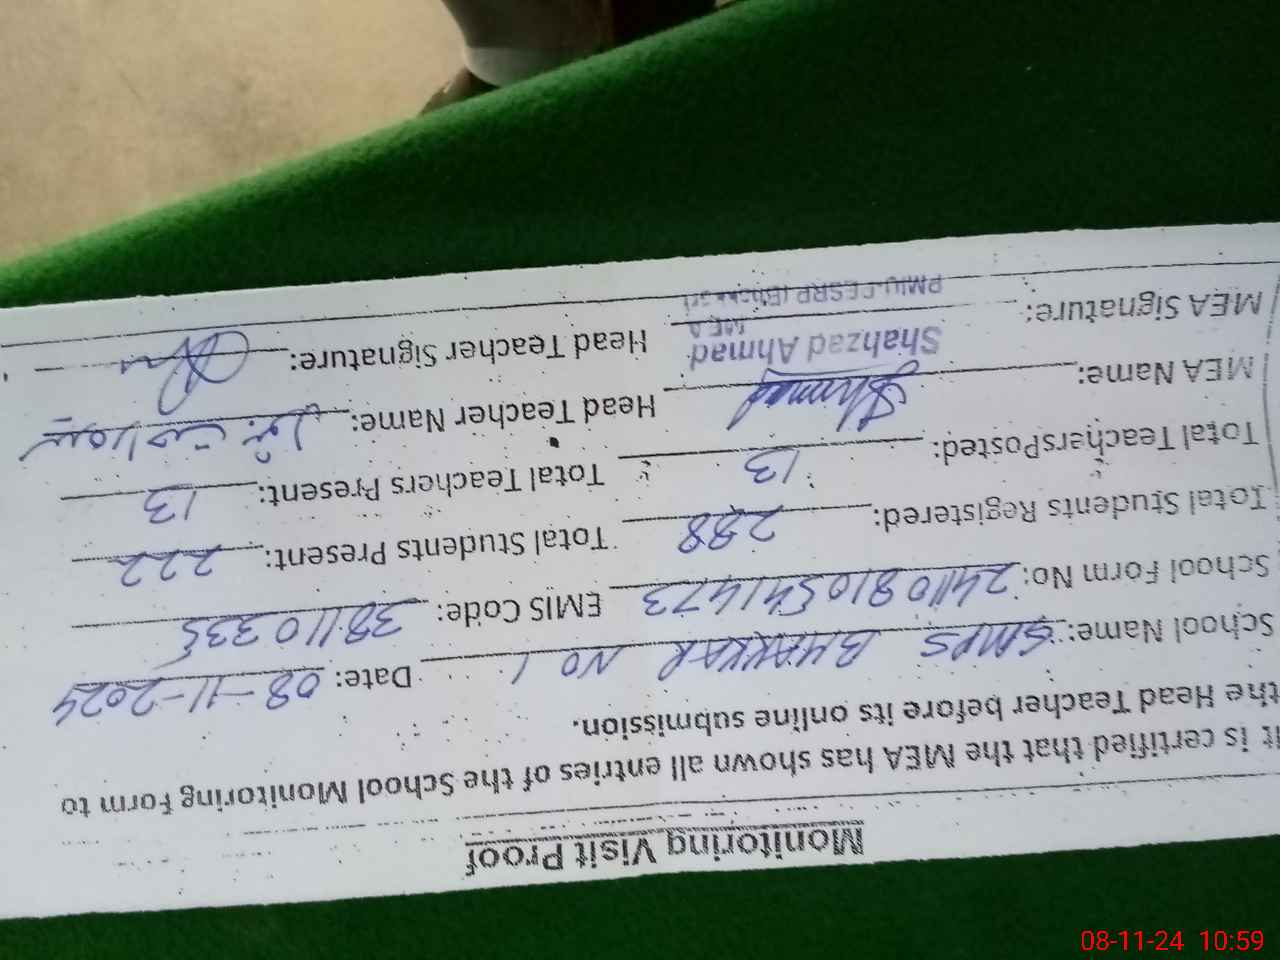 Monitoring Visit Proof
it is certified that the MEA has shown all entries of the School Monitoring Form to
the Head Teacher before its online submission.
School Name: GMPS BHAKKAR NO 1 Date: 08-11-2024
School Form No: 2411081054 1473 EMIS Code: 38110335
Total Students Registered: 288 Total Students Present: 222
Total TeachersPosted: 13 Total Teachers Present: 13
MEA Name: Ahmad Head Teacher Name:
Shahzad Ahmad
MEA
MEA Signature: Head Teacher Signature:
PMIU-PESRP (Bhakkar)
08-11-24 10:59